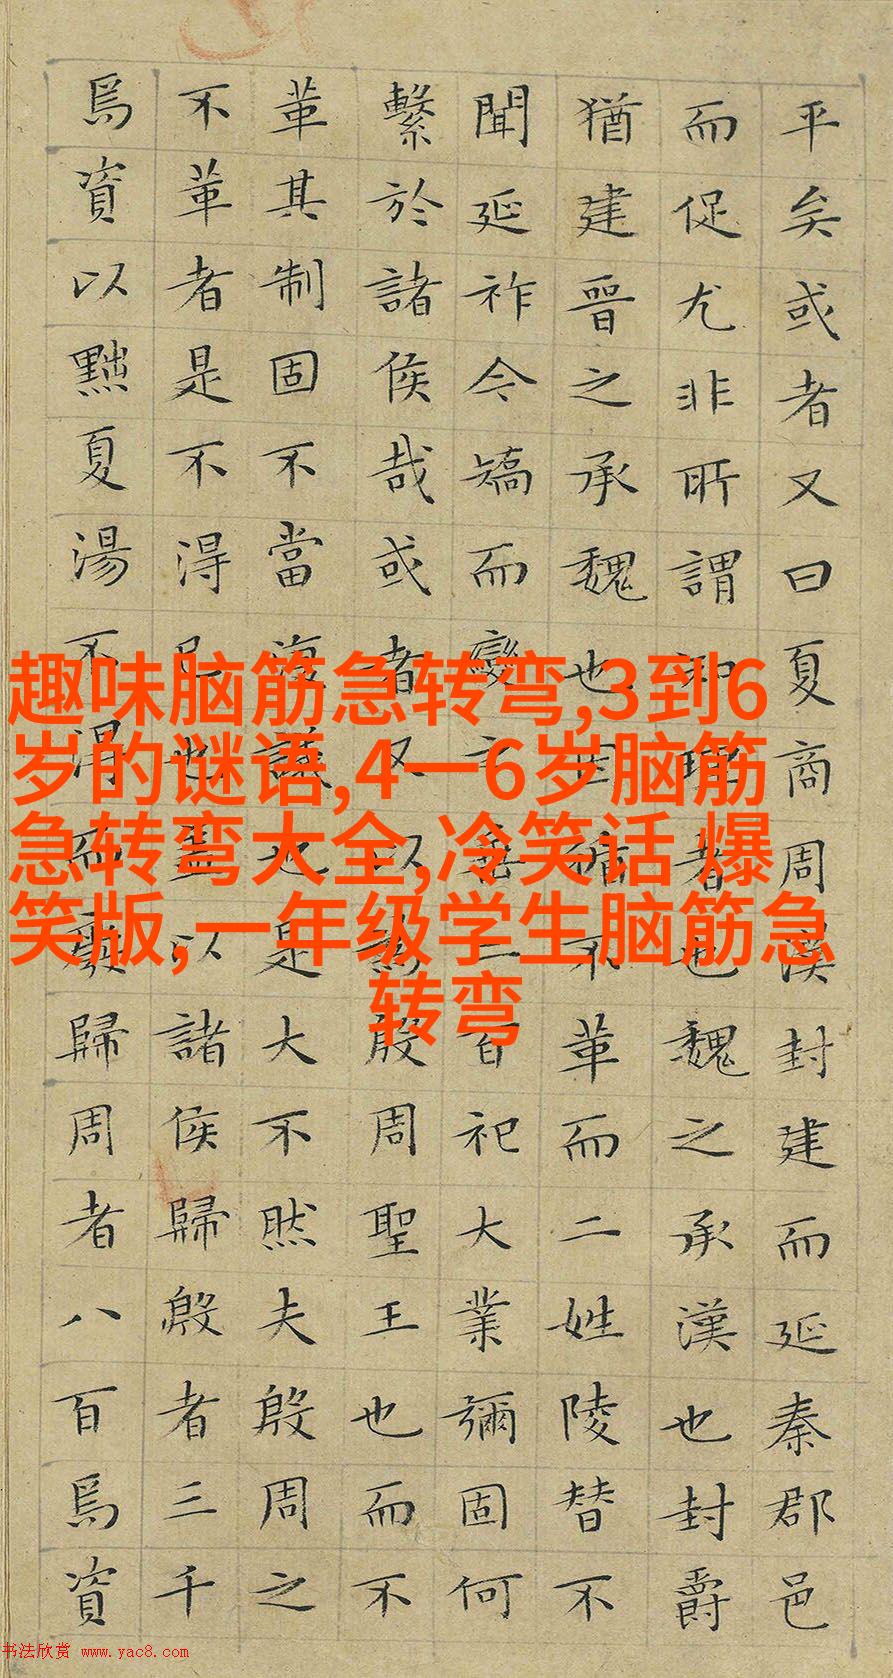 平矣或者又曰夏商周漢封建而延秦郡邑
而促尤非所謂知理者也魏之承漢也封爵
猶建晉之承魏也因循不革而二姓陵替不
聞延祚今矯而變之垂二百祀大業彌固何
繫於諸侯哉或者又以為殷周聖王也而不
革其制固不當復議也是大不然夫殷周之
不革者是不得已也蓋以諸侯歸殷者三千
焉資以黜夏湯不得而廢歸周者八百焉資
趣味脑筋急转弯,3到6
岁的谜语,4一6岁脑筋
急转弯大全,冷笑话 爆
笑版,一年级学生脑筋急
转弯
书法欣赏 www.yac8.com